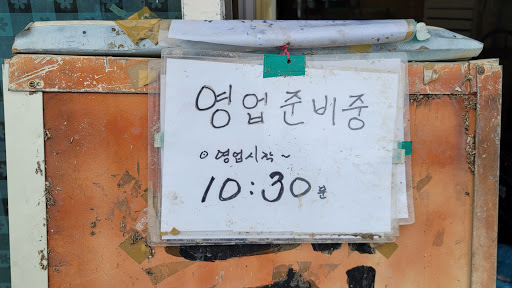 영업준비중
⊙ 영업시작~
10:30분